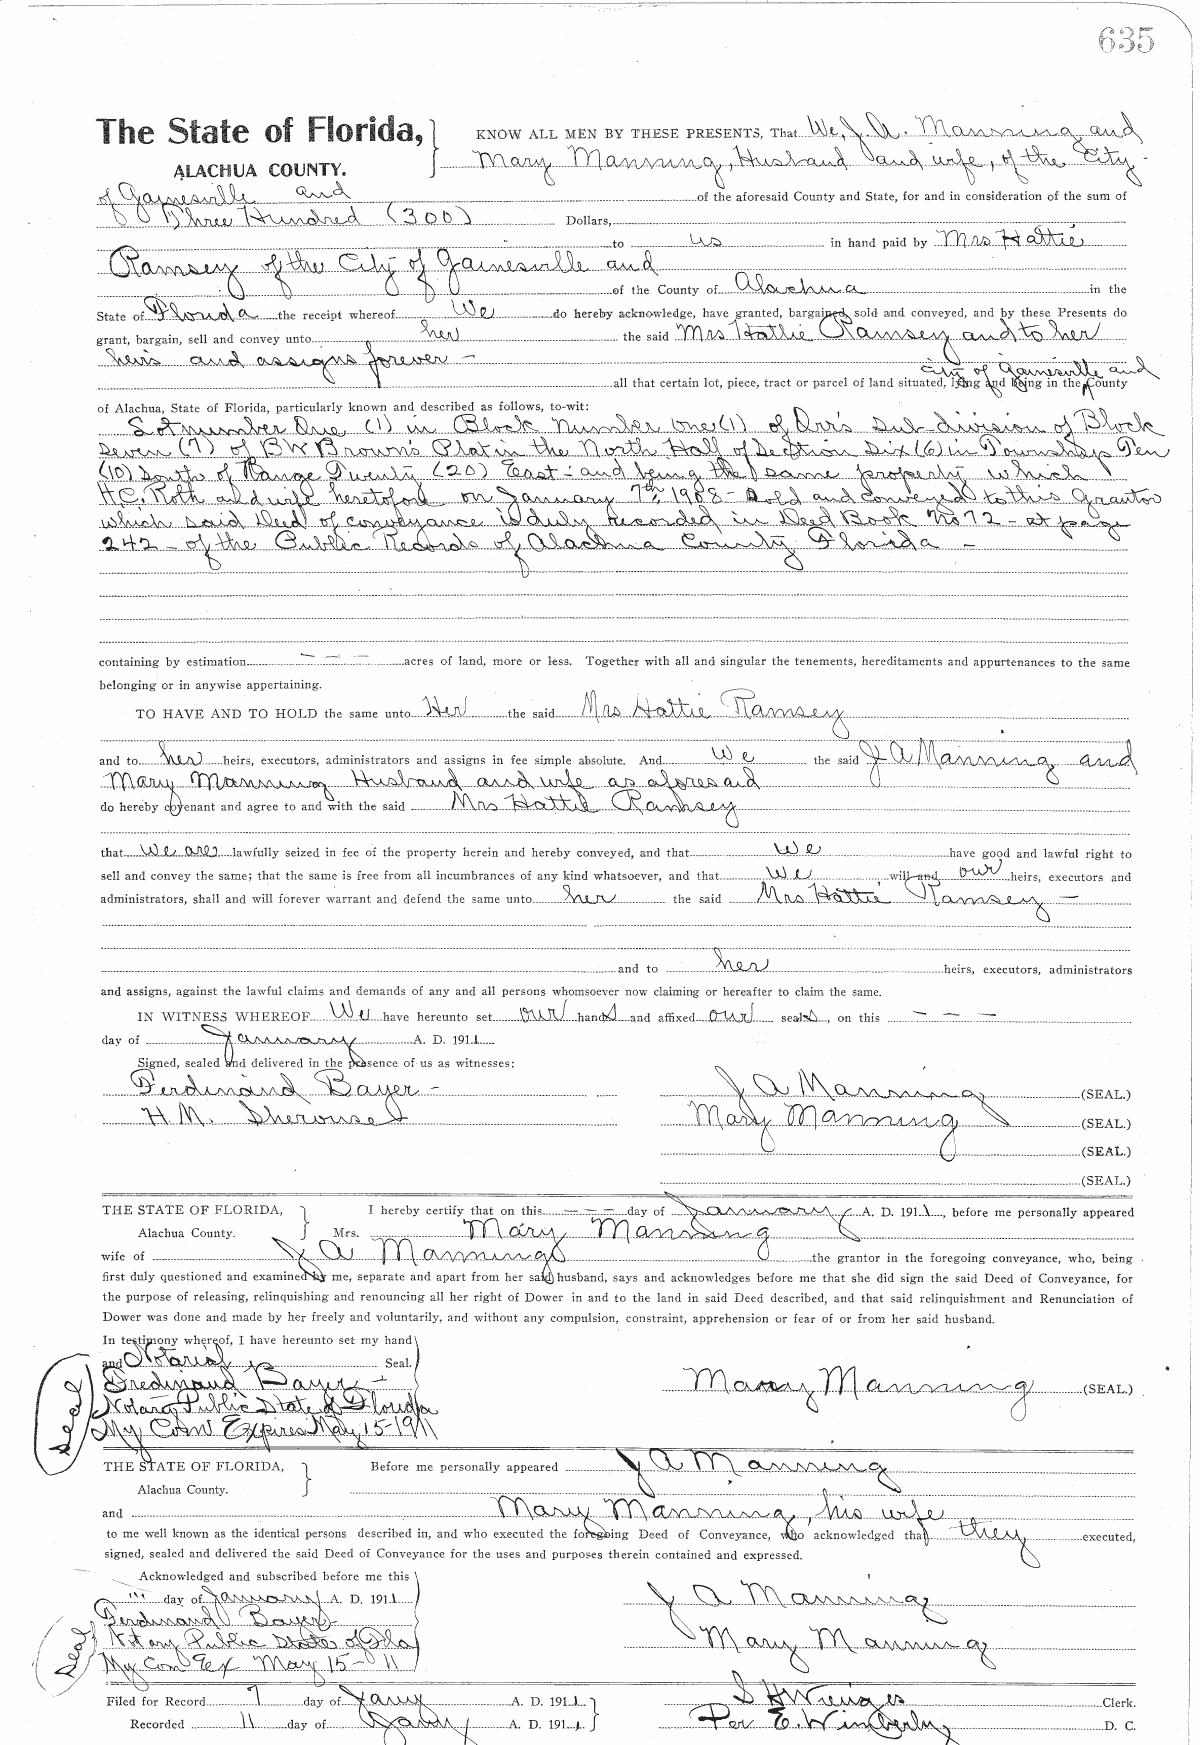 635
The State of Florida,
ALACHUA COUNTY.
KNOW ALL MEN BY THESE PRESENTS, That We, J. A. Manning and
Mary Manning, Husband and wife, of the City
of Gainesville and of the aforesaid County and State, for and in consideration of the sum of
Three Hundred (300) Dollars,
to us in hand paid by Mrs Hattie
Ramsey of the City of Gainesville and
of the County of Alachua in the
State of Florida the receipt whereof We do hereby acknowledge, have granted, bargained, sold and conveyed, and by these Presents do
grant, bargain, sell and convey unto her the said Mrs Hattie Ramsey and to her
heirs and assigns forever —
City of Gainesville and
all that certain lot, piece, tract or parcel of land situated, lying and being in the County
of Alachua, State of Florida, particularly known and described as follows, to-wit:
Lot number One (1) in Block Number One (1) of Orr's Sub-division of Block
Seven (7) of B W Brown's Plat in the North Half of Section Six (6) in Township Ten
(10) South of Range Twenty (20) East - and being the same property which
H.C. Roth and wife heretofore on January 7th, 1908 - sold and conveyed to this Grantor
which said Deed of conveyance is duly recorded in Deed Book No 72 - at page
242 - of the Public Records of Alachua County Florida —
containing by estimation — — — acres of land, more or less. Together with all and singular the tenements, hereditaments and appurtenances to the same
belonging or in anywise appertaining.
TO HAVE AND TO HOLD the same unto Her the said Mrs Hattie Ramsey
and to her heirs, executors, administrators and assigns in fee simple absolute. And We the said J A Manning and
Mary Manning Husband and wife as aforesaid
do hereby covenant and agree to and with the said Mrs Hattie Ramsey
that We are lawfully seized in fee of the property herein and hereby conveyed, and that We have good and lawful right to
sell and convey the same; that the same is free from all incumbrances of any kind whatsoever, and that We will and our heirs, executors and
administrators, shall and will forever warrant and defend the same unto her the said Mrs Hattie Ramsey —
and to her heirs, executors, administrators
and assigns, against the lawful claims and demands of any and all persons whomsoever now claiming or hereafter to claim the same.
IN WITNESS WHEREOF We have hereunto set our hands and affixed our seals, on this — — —
day of January A. D. 1911
Signed, sealed and delivered in the presence of us as witnesses:
Ferdinand Bayer - J A Manning (SEAL.)
H.M. Sherouse Mary Manning (SEAL.)
(SEAL.)
(SEAL.)
THE STATE OF FLORIDA, I hereby certify that on this — — — day of January A. D. 1911, before me personally appeared
Alachua County. Mrs. Mary Manning
wife of J A Manning the grantor in the foregoing conveyance, who, being
first duly questioned and examined by me, separate and apart from her said husband, says and acknowledges before me that she did sign the said Deed of Conveyance, for
the purpose of releasing, relinquishing and renouncing all her right of Dower in and to the land in said Deed described, and that said relinquishment and Renunciation of
Dower was done and made by her freely and voluntarily, and without any compulsion, constraint, apprehension or fear of or from her said husband.
In testimony whereof, I have hereunto set my hand
and Notarial Seal.
Seal
Ferdinand Bayer -
Mary Manning (SEAL.)
Notary Public State of Florida
My Com Expires May 15-1911
THE STATE OF FLORIDA, Before me personally appeared J A Manning
Alachua County.
and Mary Manning, his wife
to me well known as the identical persons described in, and who executed the foregoing Deed of Conveyance, who acknowledged that they executed,
signed, sealed and delivered the said Deed of Conveyance for the uses and purposes therein contained and expressed.
Acknowledged and subscribed before me this
day of January A. D. 1911 J A Manning
Ferdinand Bayer
Seal
Notary Public State of Fla Mary Manning
My Com Ex May 15-11
Filed for Record 7 day of Jany A. D. 1911 S H Wienges Clerk.
Recorded 11 day of Jany A. D. 1911 Per E. Wimberly D. C.